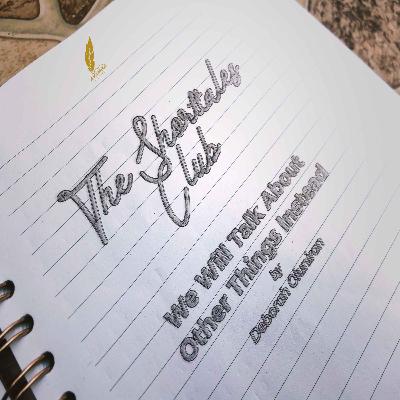 The Shorttales
Club
We Will Talk About
Other Things Instead
by
Deborah